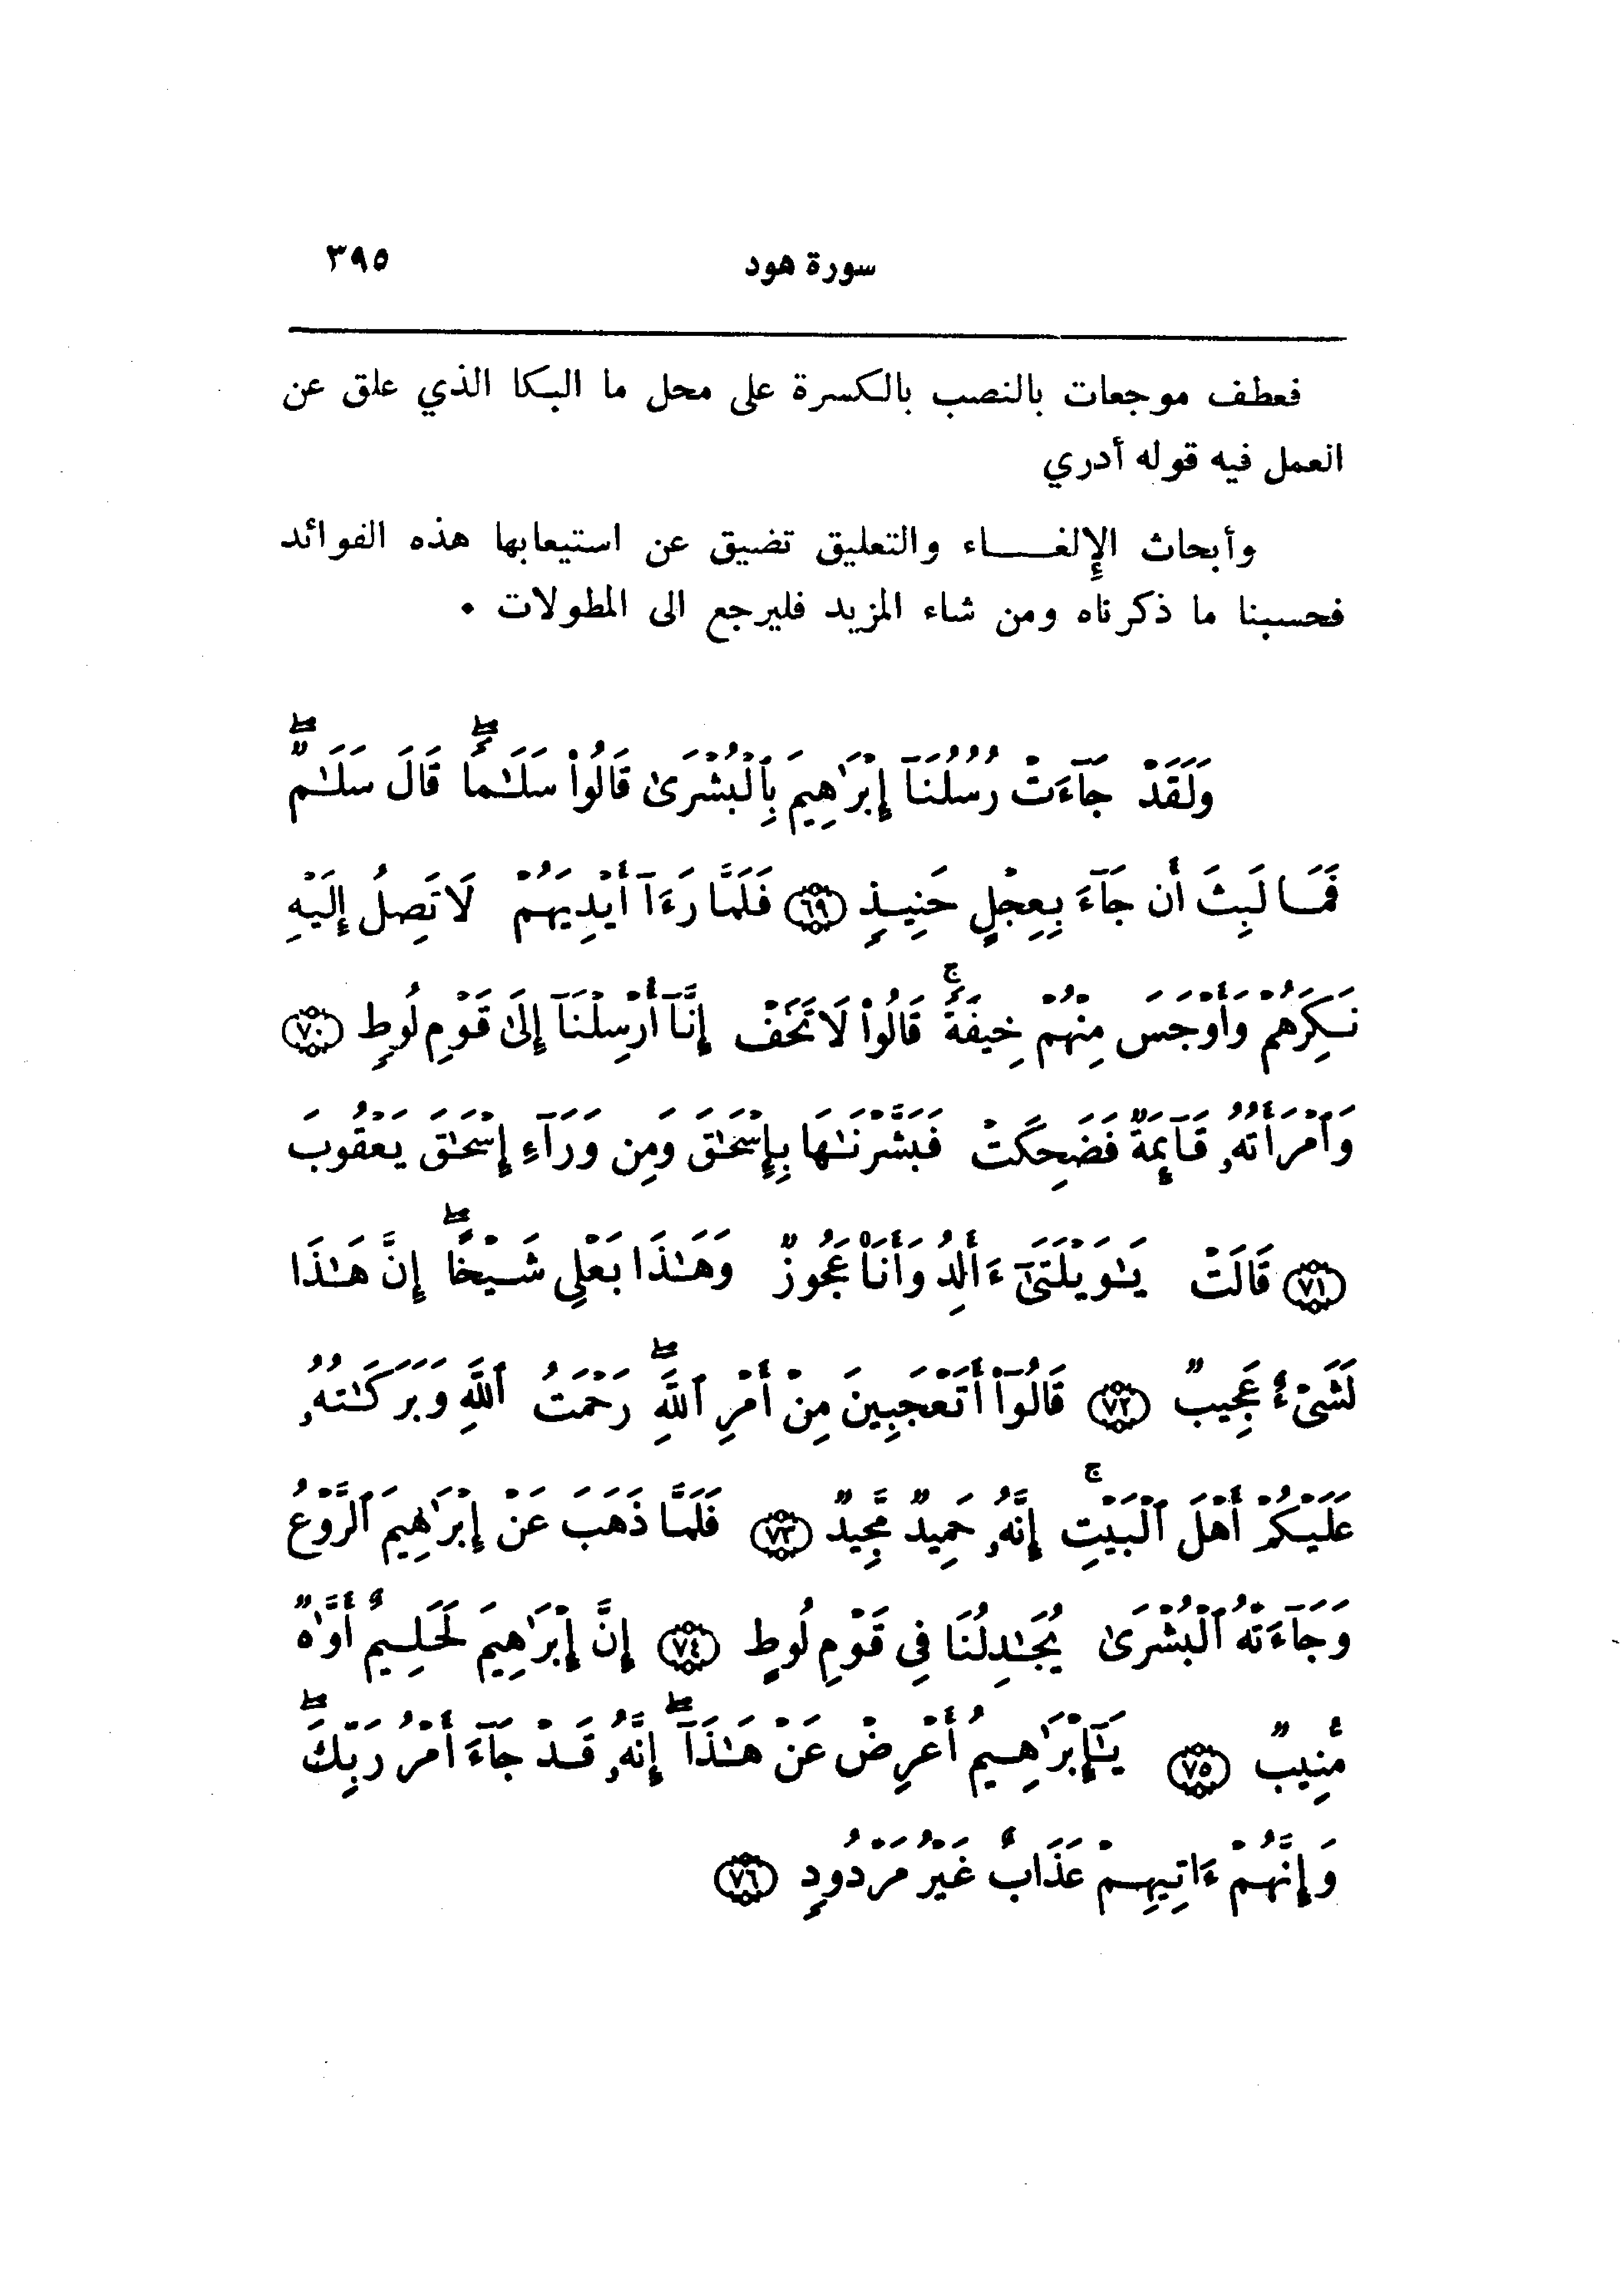 سورة هود ٣٩٥
فعطف موجعات بالنصب بالكسرة على محل ما البكا الذي علق عن
العمل فيه قوله أدري
وأبحاث الإلغــــاء والتعليق تضيق عن استيعابها هذه الفوائد
فحسبنا ما ذكرناه ومن شاء المزيد فليرجع الى المطولات ٠
وَلَقَدْ جَآءَتْ رُسُلُنَآ إِبْرَٰهِيمَ بِٱلْبُشْرَىٰ قَالُوا۟ سَلَـٰمًا ۖ قَالَ سَلَـٰمٌ ۖ
فَمَا لَبِثَ أَن جَآءَ بِعِجْلٍ حَنِيذٍ ۝٦٩ فَلَمَّا رَءَآ أَيْدِيَهُمْ لَا تَصِلُ إِلَيْهِ
نَكِرَهُمْ وَأَوْجَسَ مِنْهُمْ خِيفَةً ۚ قَالُوا۟ لَا تَخَفْ إِنَّآ أُرْسِلْنَآ إِلَىٰ قَوْمِ لُوطٍ ۝٧٠
وَٱمْرَأَتُهُۥ قَآئِمَةٌ فَضَحِكَتْ فَبَشَّرْنَـٰهَا بِإِسْحَـٰقَ وَمِن وَرَآءِ إِسْحَـٰقَ يَعْقُوبَ
۝٧١ قَالَتْ يَـٰوَيْلَتَىٰٓ ءَأَلِدُ وَأَنَا۠ عَجُوزٌ وَهَـٰذَا بَعْلِى شَيْخًا ۖ إِنَّ هَـٰذَا
لَشَىْءٌ عَجِيبٌ ۝٧٢ قَالُوٓا۟ أَتَعْجَبِينَ مِنْ أَمْرِ ٱللَّهِ ۖ رَحْمَتُ ٱللَّهِ وَبَرَكَـٰتُهُۥ
عَلَيْكُمْ أَهْلَ ٱلْبَيْتِ ۚ إِنَّهُۥ حَمِيدٌ مَّجِيدٌ ۝٧٣ فَلَمَّا ذَهَبَ عَنْ إِبْرَٰهِيمَ ٱلرَّوْعُ
وَجَآءَتْهُ ٱلْبُشْرَىٰ يُجَـٰدِلُنَا فِى قَوْمِ لُوطٍ ۝٧٤ إِنَّ إِبْرَٰهِيمَ لَحَلِيمٌ أَوَّٰهٌ
مُّنِيبٌ ۝٧٥ يَـٰٓإِبْرَٰهِيمُ أَعْرِضْ عَنْ هَـٰذَآ ۖ إِنَّهُۥ قَدْ جَآءَ أَمْرُ رَبِّكَ ۖ
وَإِنَّهُمْ ءَاتِيهِمْ عَذَابٌ غَيْرُ مَرْدُودٍ ۝٧٦